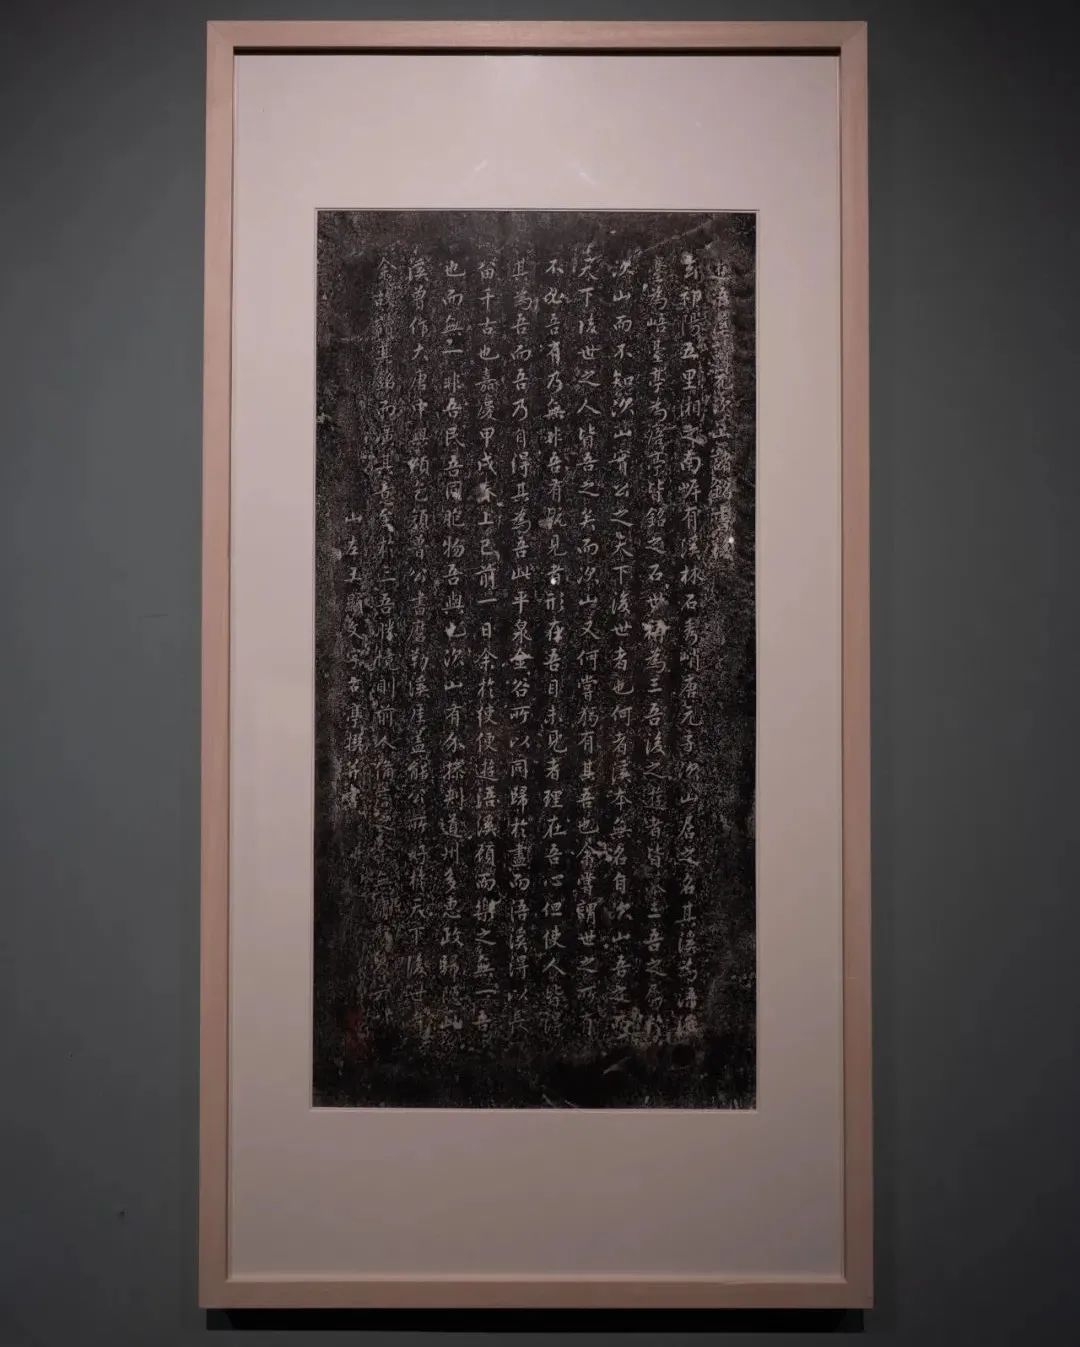 元次山
去祁陽五里湘之南岸有溪林石秀峭唐元子次山居之名其溪為浯溪
臺為峿臺亭為𢈪亭皆銘之石世稱為三吾後之遊者皆三吾之
次山而不知次山實公之天下後世者也何者溪本無名自次山吾之
天下後世之人皆吾之矣而次山又何嘗獨有其吾也余嘗謂世之所有
不必吾有乃無非吾有既見者形在吾目未見者理在吾心但使人皆得
其為吾而吾乃自得其為吾此平泉金谷所以同歸於盡而浯溪得以長
留千古也嘉慶甲戌春上巳前一日余於使使遊浯溪顧而樂之無一吾
也而無一非吾民吾同胞物吾與也次山有知探刺道州多惠政歸隱此
溪曾作大唐中興頌乞顏魯公書磨勒溪崖蓋能公所好於天下後世
余其銘而其意至於三吾勝境則前人備
山左王文亭撰并書